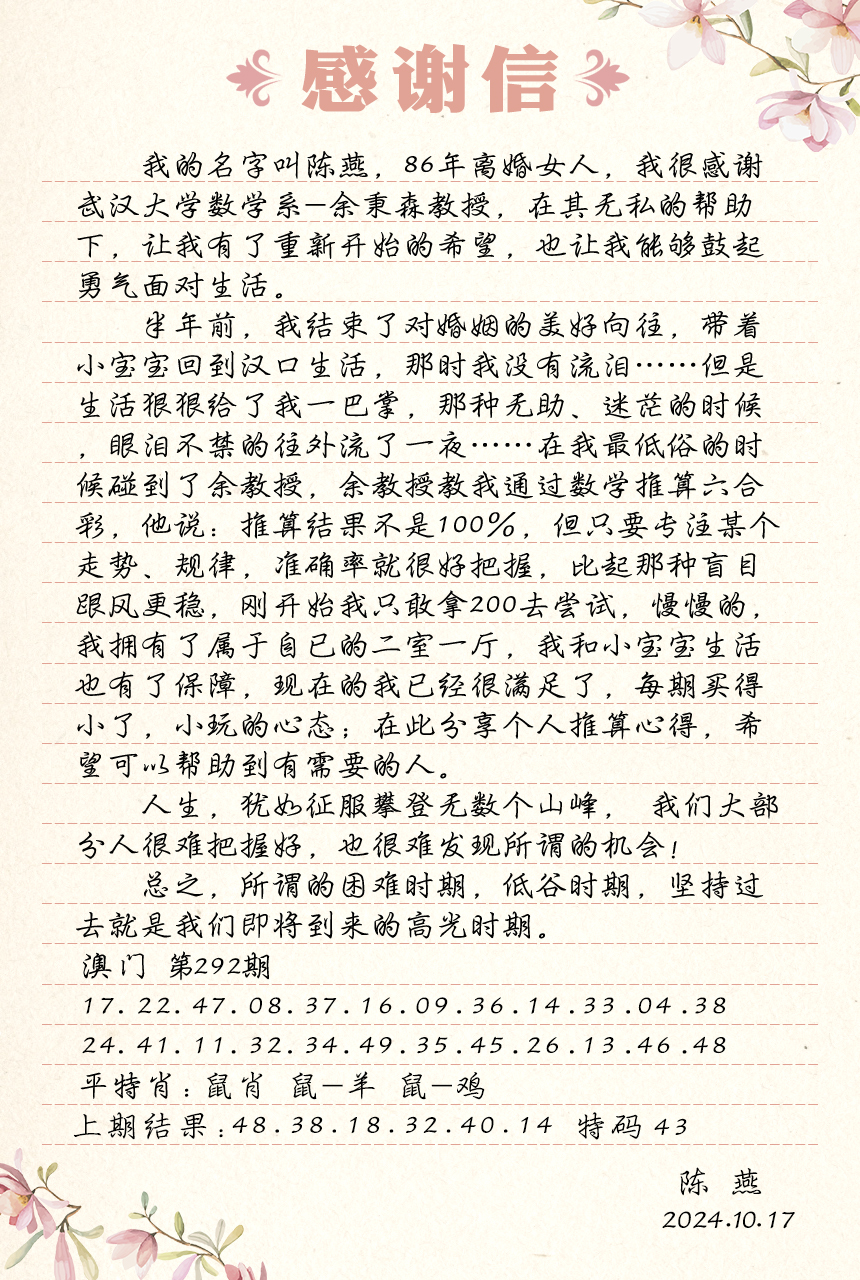 感谢信
我的名字叫陈燕，86年离婚女人，我很感谢
武汉大学数学系—余秉森教授，在其无私的帮助
下，让我有了重新开始的希望，也让我能够鼓起
勇气面对生活。
半年前，我结束了对婚姻的美好向往，带着
小宝宝回到汉口生活，那时我没有流泪……但是
生活狠狠给了我一巴掌，那种无助、迷茫的时候
，眼泪不禁的往外流了一夜……在我最低俗的时
候碰到了余教授，余教授教我通过数学推算六合
彩，他说：推算结果不是100%，但只要专注某个
走势、规律，准确率就很好把握，比起那种盲目
跟风更稳，刚开始我只敢拿200去尝试，慢慢的，
我拥有了属于自已的二室一厅，我和小宝宝生活
也有了保障，现在的我已经很满足了，每期买得
小了，小玩的心态；在此分享个人推算心得，希
望可以帮助到有需要的人。
人生，犹如征服攀登无数个山峰， 我们大部
分人很难把握好，也很难发现所谓的机会！
总之，所谓的困难时期，低谷时期，坚持过
去就是我们即将到来的高光时期。
澳门 第292期
17.22.47.08.37.16.09.36.14.33.04.38
24.41.11.32.34.49.35.45.26.13.46.48
平特肖：鼠肖 鼠—羊 鼠—鸡
上期结果：48.38.18.32.40.14 特码 43
陈 燕
2024.10.17